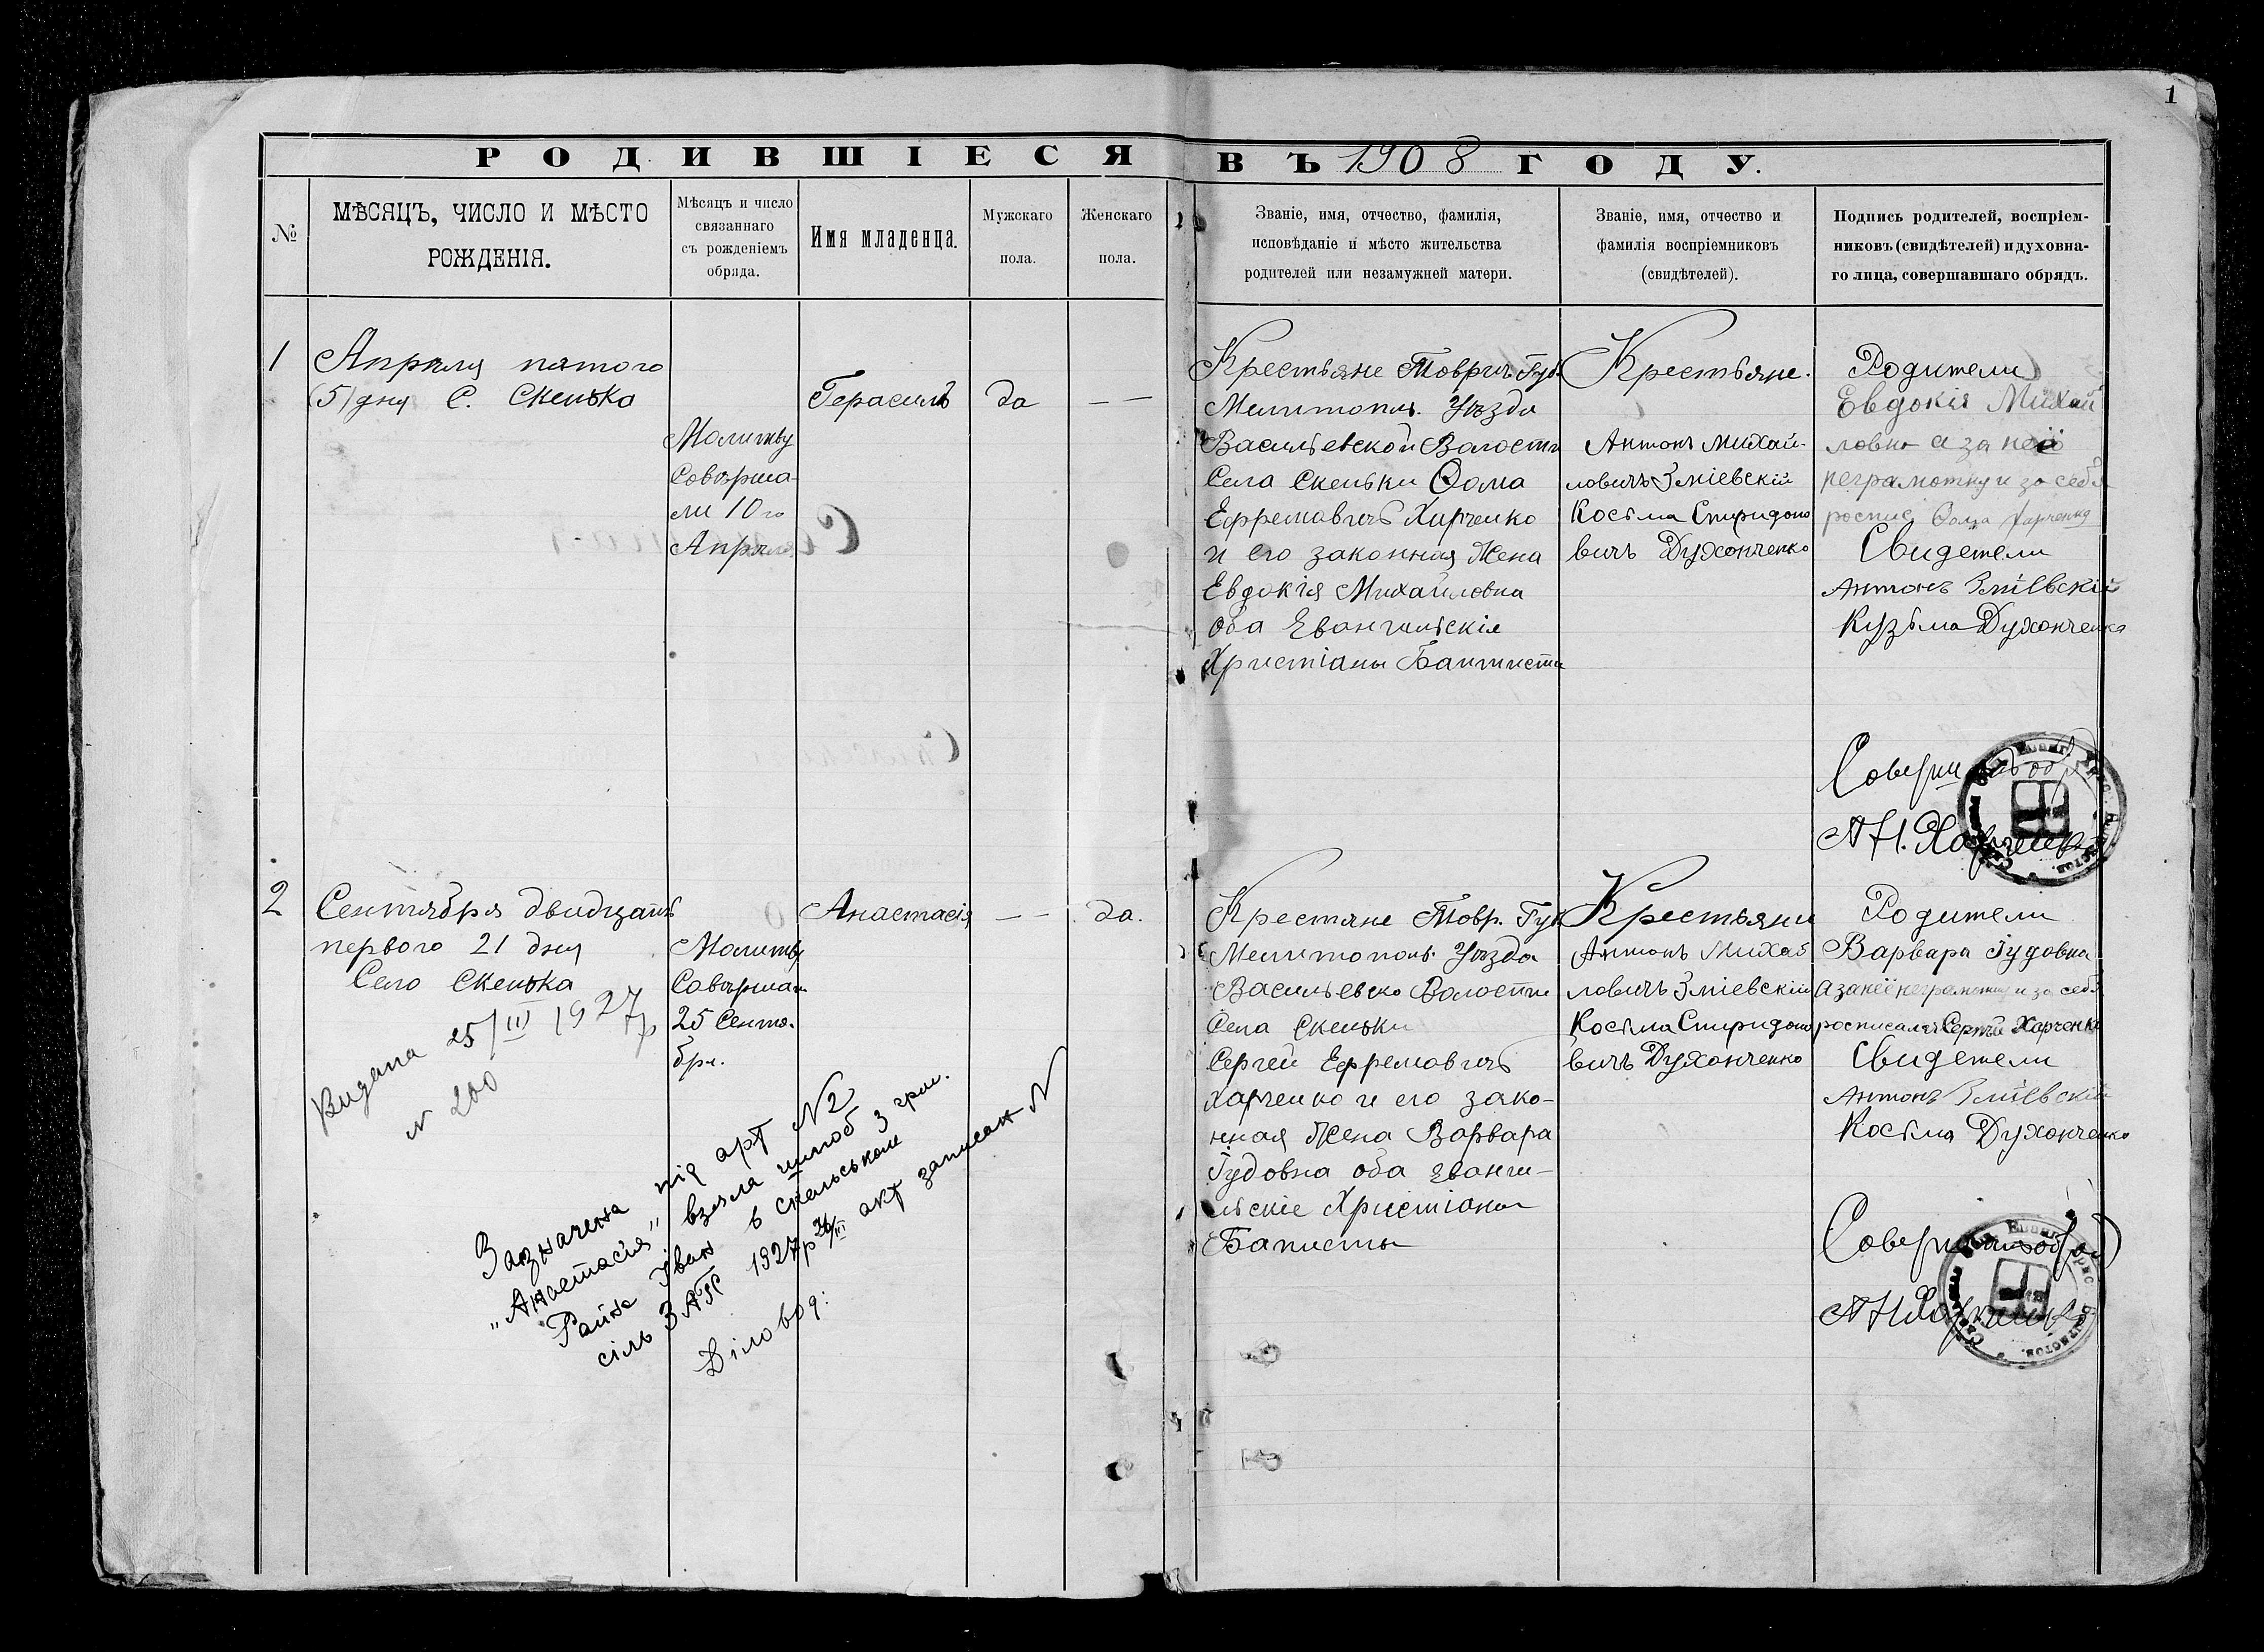 1
РОДИВШІЕСЯ ВЪ 1908 ГОДУ.
№
МѢСЯЦЪ, ЧИСЛО И МѢСТО
РОЖДЕНІЯ.
Мѣсяцъ и число
связаннаго
съ рожденіемъ
обряда.
Имя младенца.
Мужскаго
пола.
Женскаго
пола.
Званіе, имя, отчество, фамилія,
исповѣданіе и мѣсто жительства
родителей или незамужней матери.
Званіе, имя, отчество и
фамилія воспріемниковъ
(свидѣтелей).
Подпись родителей, воспріем-
никовъ (свидѣтелей) и духовна-
го лица, совершавшаго обрядъ.
1
Апрѣля пятого
(5) дня С. Скенька
Молитву
Совѣрша-
ли 10го
Апрѣля
Герасимъ
да
— —
Крестьяне Товрич. Губ.
Мелитопль. Уѣзда
Васильевской Волости
Села Скеньки Ѳома
Ефремовичъ Харченко
и его законная Жена
Евдокія Михайловна
оба Евангильскія
Христіаны Баптисты
Крестьяне.
Антонъ Михай-
ловичъ Зміевскій
Косьма Спиридоно
вичъ Духонченко
Родители
Евдокія Михай
ловна а за неё
неграмотну и за себя
роспис Ѳома Харченко
Свидетели
Антонъ Зміевскій
Кузьма Духонченко
А Н. Харченко
2
Сентября двидцать
первого 21 дня
Село Скенька
Молитву
Совѣршал
25 Сентя.
бря.
Анастасія
— —
да.
Крестяне Товр. Губ
Мелитополь. Уѣзда
Васильевско Волости
Села Скеньки
Сергей Ефремовичъ
Харченко и его зако-
нная Жена Варвара
Іудовна оба Еванги-
льскіе Христіаны
Баписты
Крестьяни
Антонъ Михай
ловичъ Зміевскій
Косьма Спиридоно
вичъ Духонченко
Родители
Варвара Іудовна
а за неё неграмотну и за себя
росписался Сергѣй Харченко
Свидетели
Антонъ Зміевскій
Косьма Духонченко
А Н Харченко
Видана 25/III 1927 р
№ 200
Зазначена під арт №2
„Анастасія" взяла шлюб з гром.
Райна Іван в скельськом
сіль ЗАГС 1927р 26/III акт записан №
Діловод: